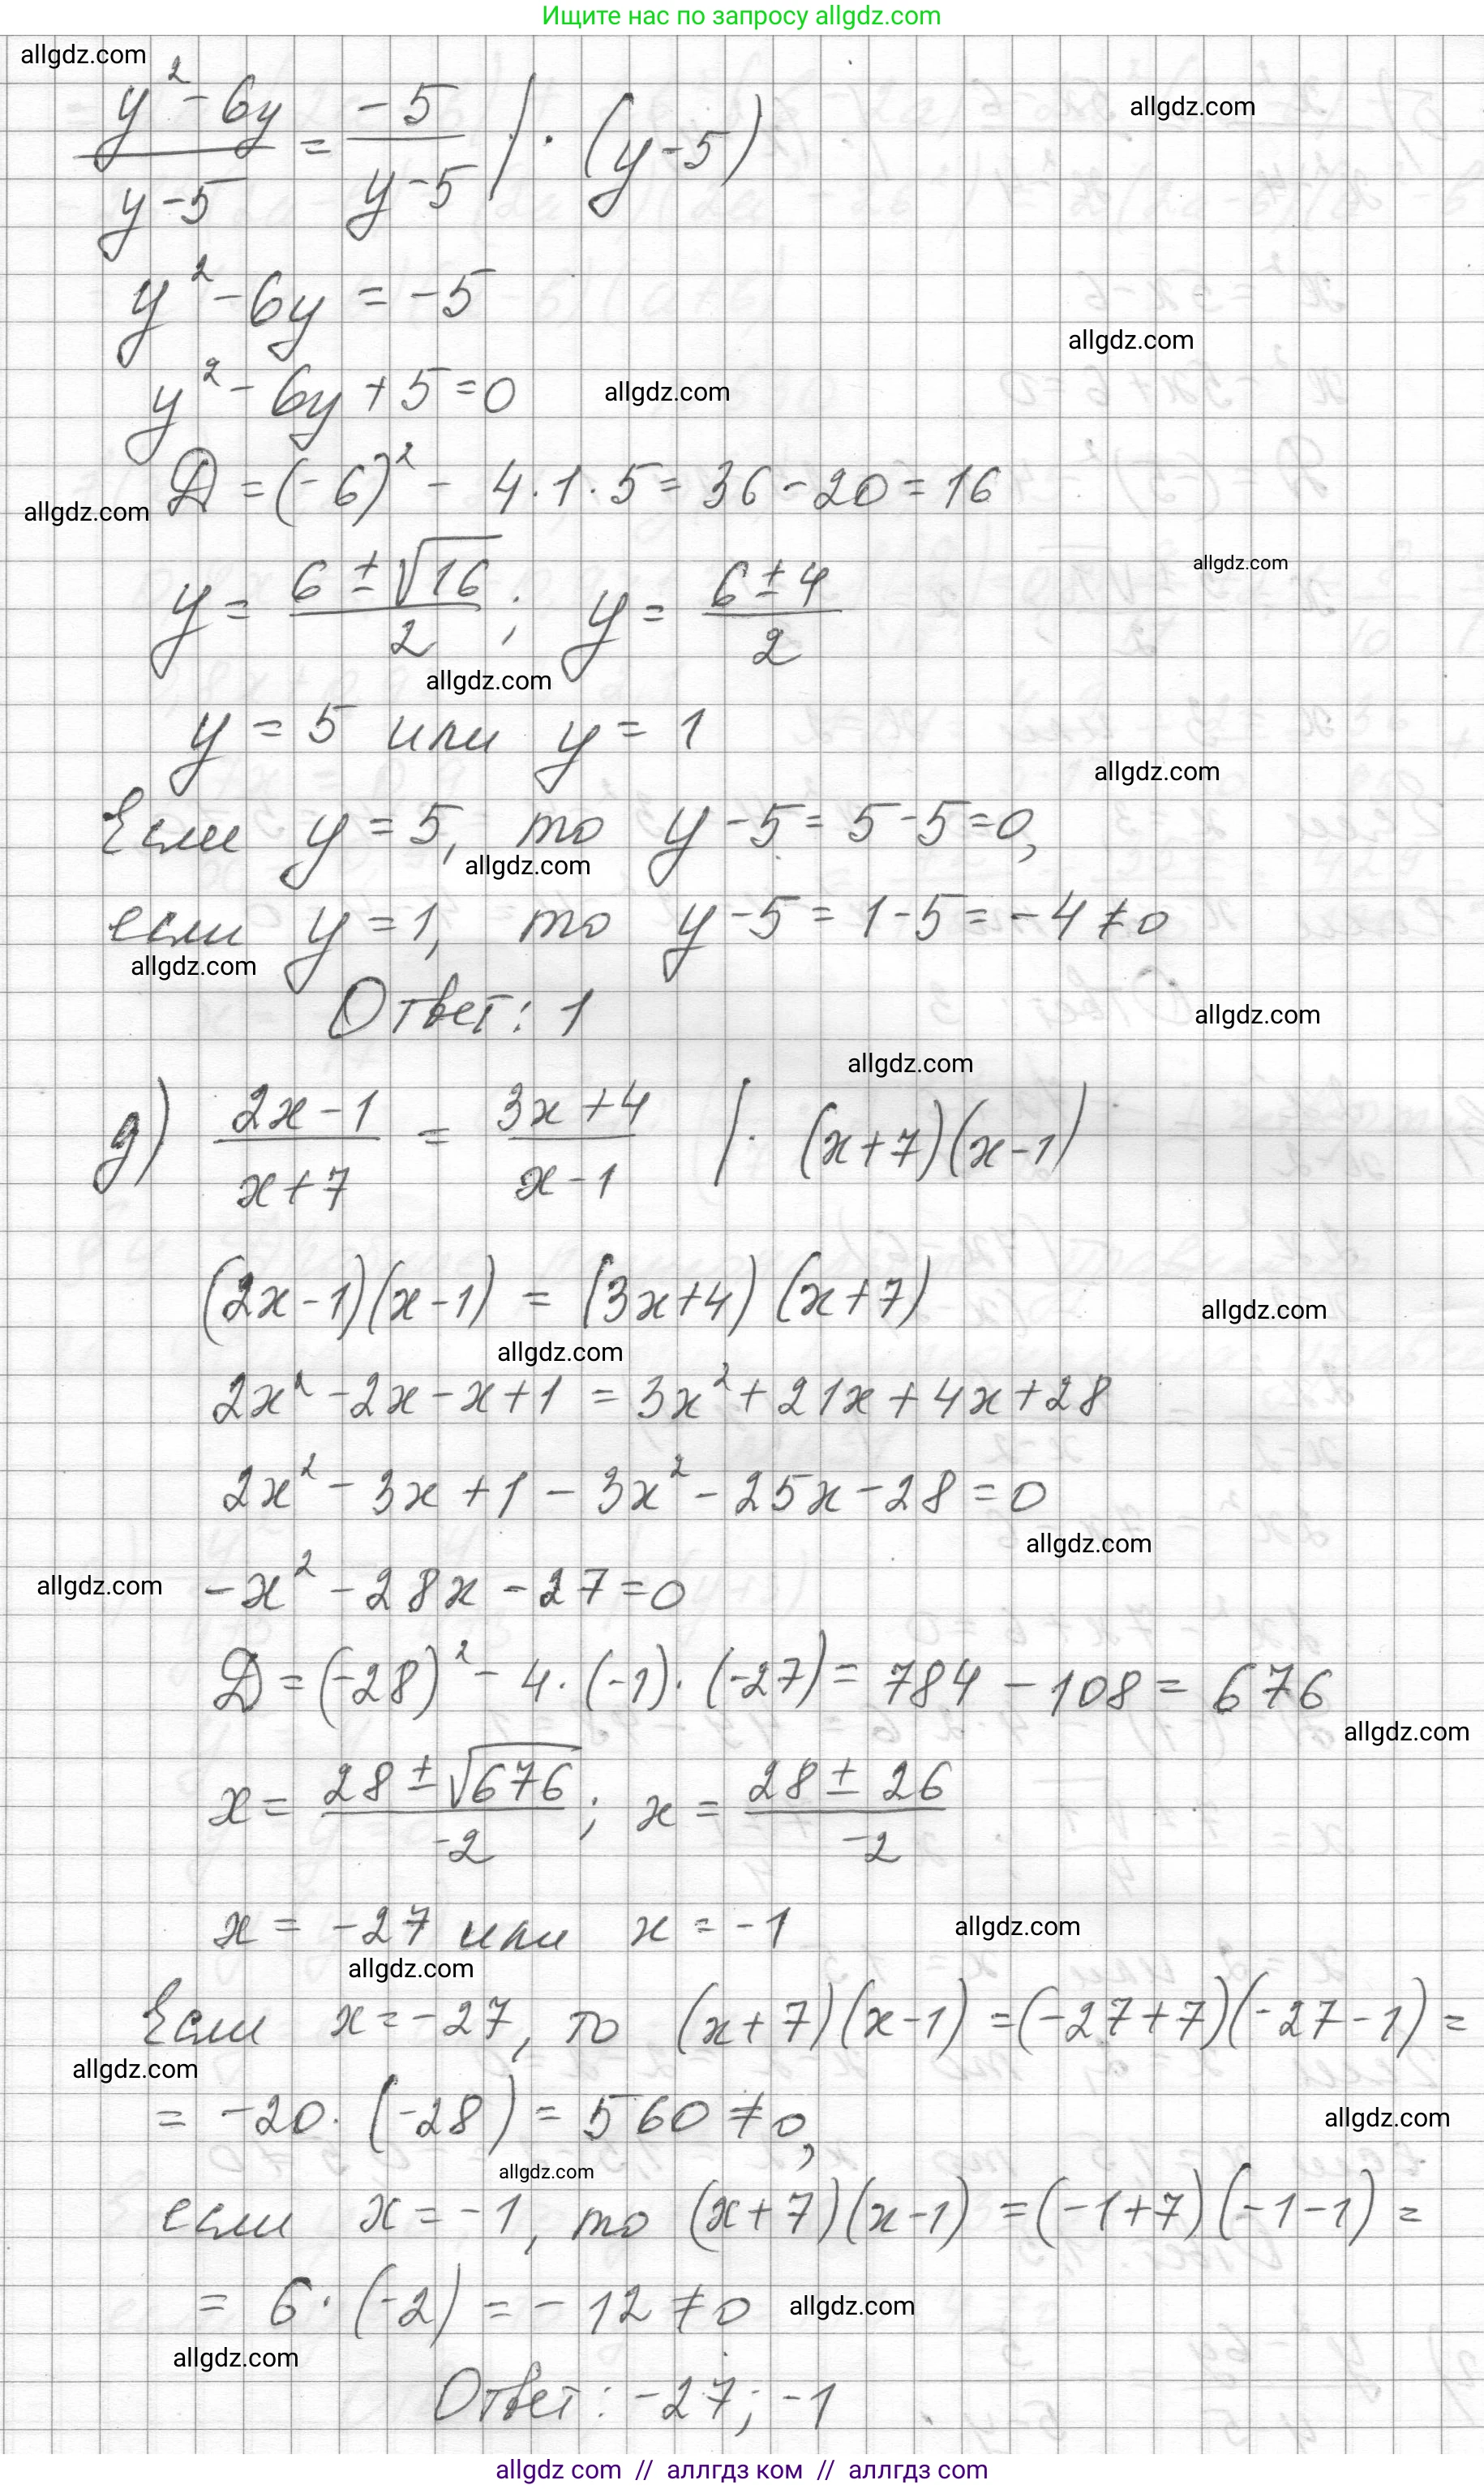 Ищите нас по запросу allgdz.com
allgdz.com
(y² - 6y)/(y - 5) = -5/(y - 5) | · (y - 5)
allgdz.com
y² - 6y = -5
allgdz.com
y² - 6y + 5 = 0
allgdz.com
D = (-6)² - 4 · 1 · 5 = 36 - 20 = 16
allgdz.com
allgdz.com
y = (6 ± √16)/2 ; y = (6 ± 4)/2
allgdz.com
y = 5 или y = 1
allgdz.com
Если y = 5, то y - 5 = 5 - 5 = 0,
allgdz.com
если y = 1, то y - 5 = 1 - 5 = -4 ≠ 0
allgdz.com
Ответ: 1
allgdz.com
allgdz.com
д) (2x - 1)/(x + 7) = (3x + 4)/(x - 1) | · (x + 7)(x - 1)
(2x - 1)(x - 1) = (3x + 4)(x + 7)
allgdz.com
allgdz.com
2x² - 2x - x + 1 = 3x² + 21x + 4x + 28
2x² - 3x + 1 - 3x² - 25x - 28 = 0
allgdz.com
allgdz.com
-x² - 28x - 27 = 0
D = (-28)² - 4 · (-1) · (-27) = 784 - 108 = 676
allgdz.com
x = (28 ± √676)/-2 ; x = (28 ± 26)/-2
x = -27 или x = -1
allgdz.com
allgdz.com
Если x = -27, то (x + 7)(x - 1) = (-27 + 7)(-27 - 1) =
allgdz.com
= -20 · (-28) = 560 ≠ 0,
allgdz.com
allgdz.com
если x = -1, то (x + 7)(x - 1) = (-1 + 7)(-1 - 1) =
= 6 · (-2) = -12 ≠ 0
allgdz.com
allgdz.com
Ответ: -27; -1
allgdz com // аллгдз ком // аллгдз com